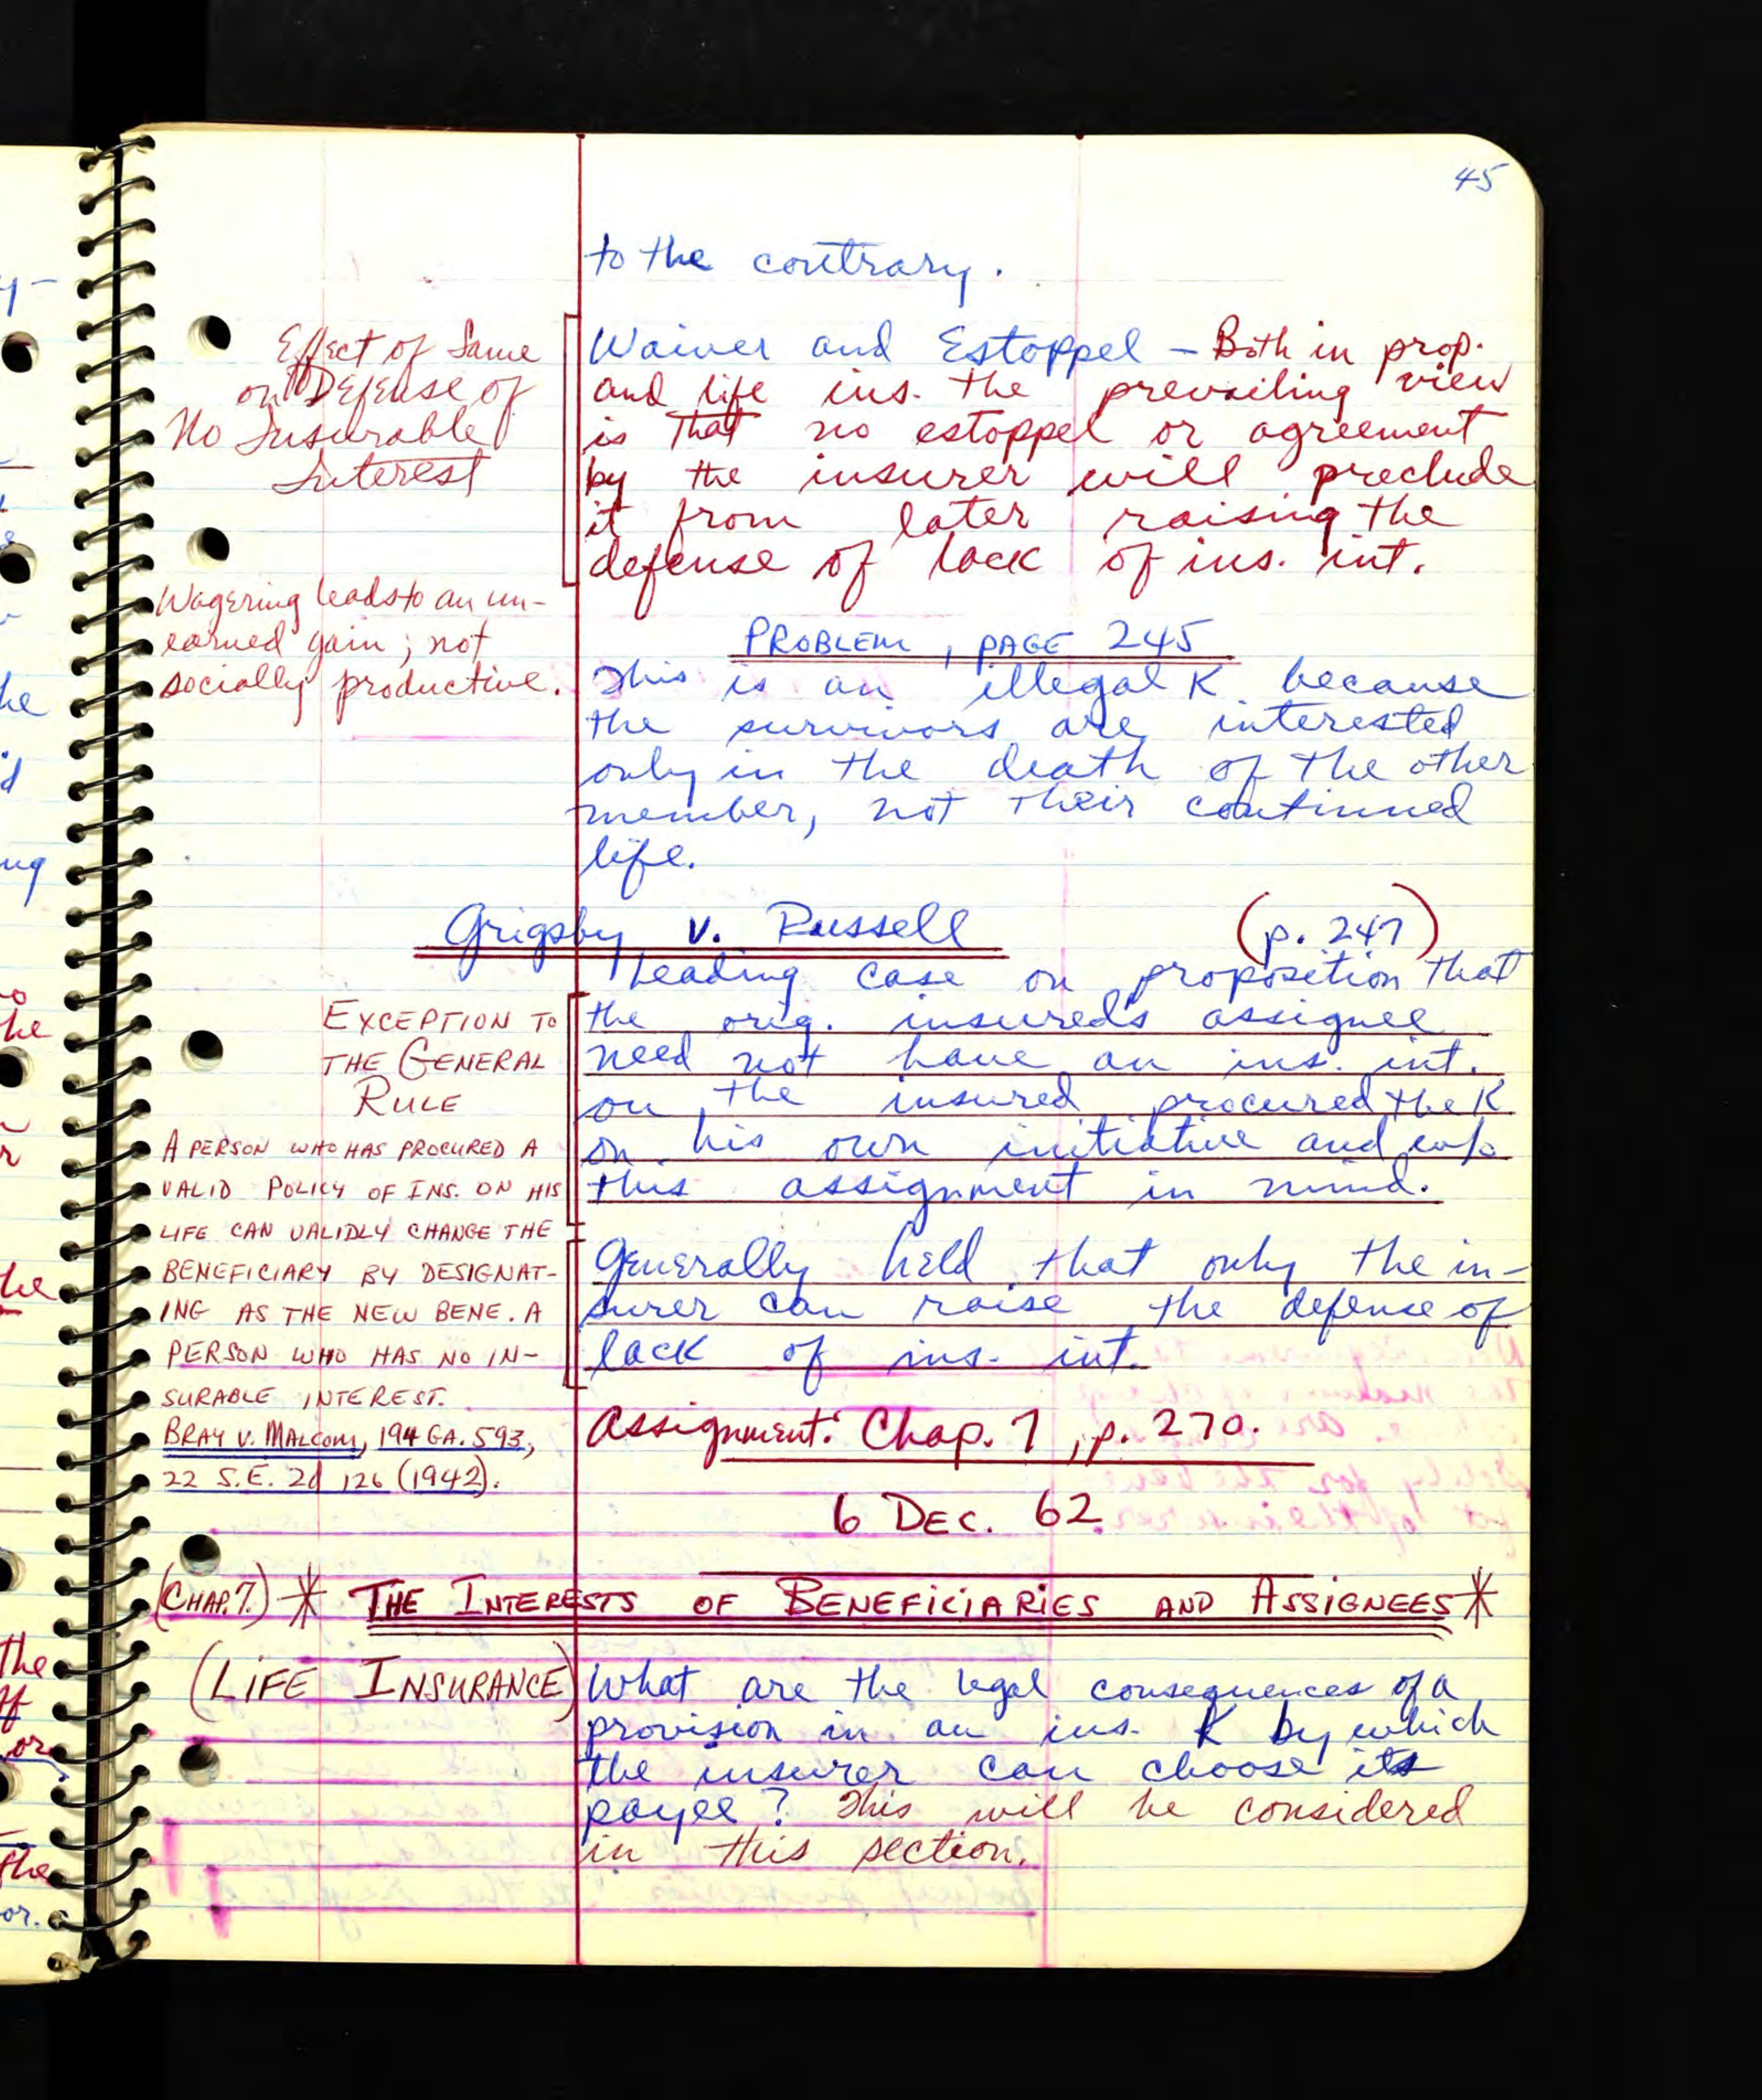 45
to the contrary.
Effect of Same
on Defense of
No Insurable
Interest
Waiver and Estoppel – Both in prop.
and life ins. the prevailing view
is that no estoppel or agreement
by the insurer will preclude
it from later raising the
defense of lack of ins. int.
Wagering leads to an un-
earned gain; not
socially productive.
PROBLEM, PAGE 245
This is an illegal K because
the survivors are interested
only in the death of the other
member, not their continued
life.
Grigsby v. Russell (p. 247)
Leading case on proposition that
EXCEPTION TO
THE GENERAL
RULE
the orig. insured's assignee
need not have an ins. int.
on the insured procured the K
on his own initiative and w/o
this assignment in mind.
A PERSON WHO HAS PROCURED A
VALID POLICY OF INS. ON HIS
LIFE CAN VALIDLY CHANGE THE
BENEFICIARY BY DESIGNAT-
ING AS THE NEW BENE. A
PERSON WHO HAS NO IN-
SURABLE INTEREST.
BRAY V. MALCOM, 194 GA. 593,
22 S.E. 2d 126 (1942).
Generally held that only the in-
surer can raise the defense of
lack of ins. int.
Assignment: Chap. 7, p. 270.
6 DEC. 62
(CHAP. 7.) * THE INTERESTS OF BENEFICIARIES AND ASSIGNEES *
(LIFE INSURANCE)
What are the legal consequences of a
provision in an ins. K by which
the insurer can choose its
payee? This will be considered
in this section.